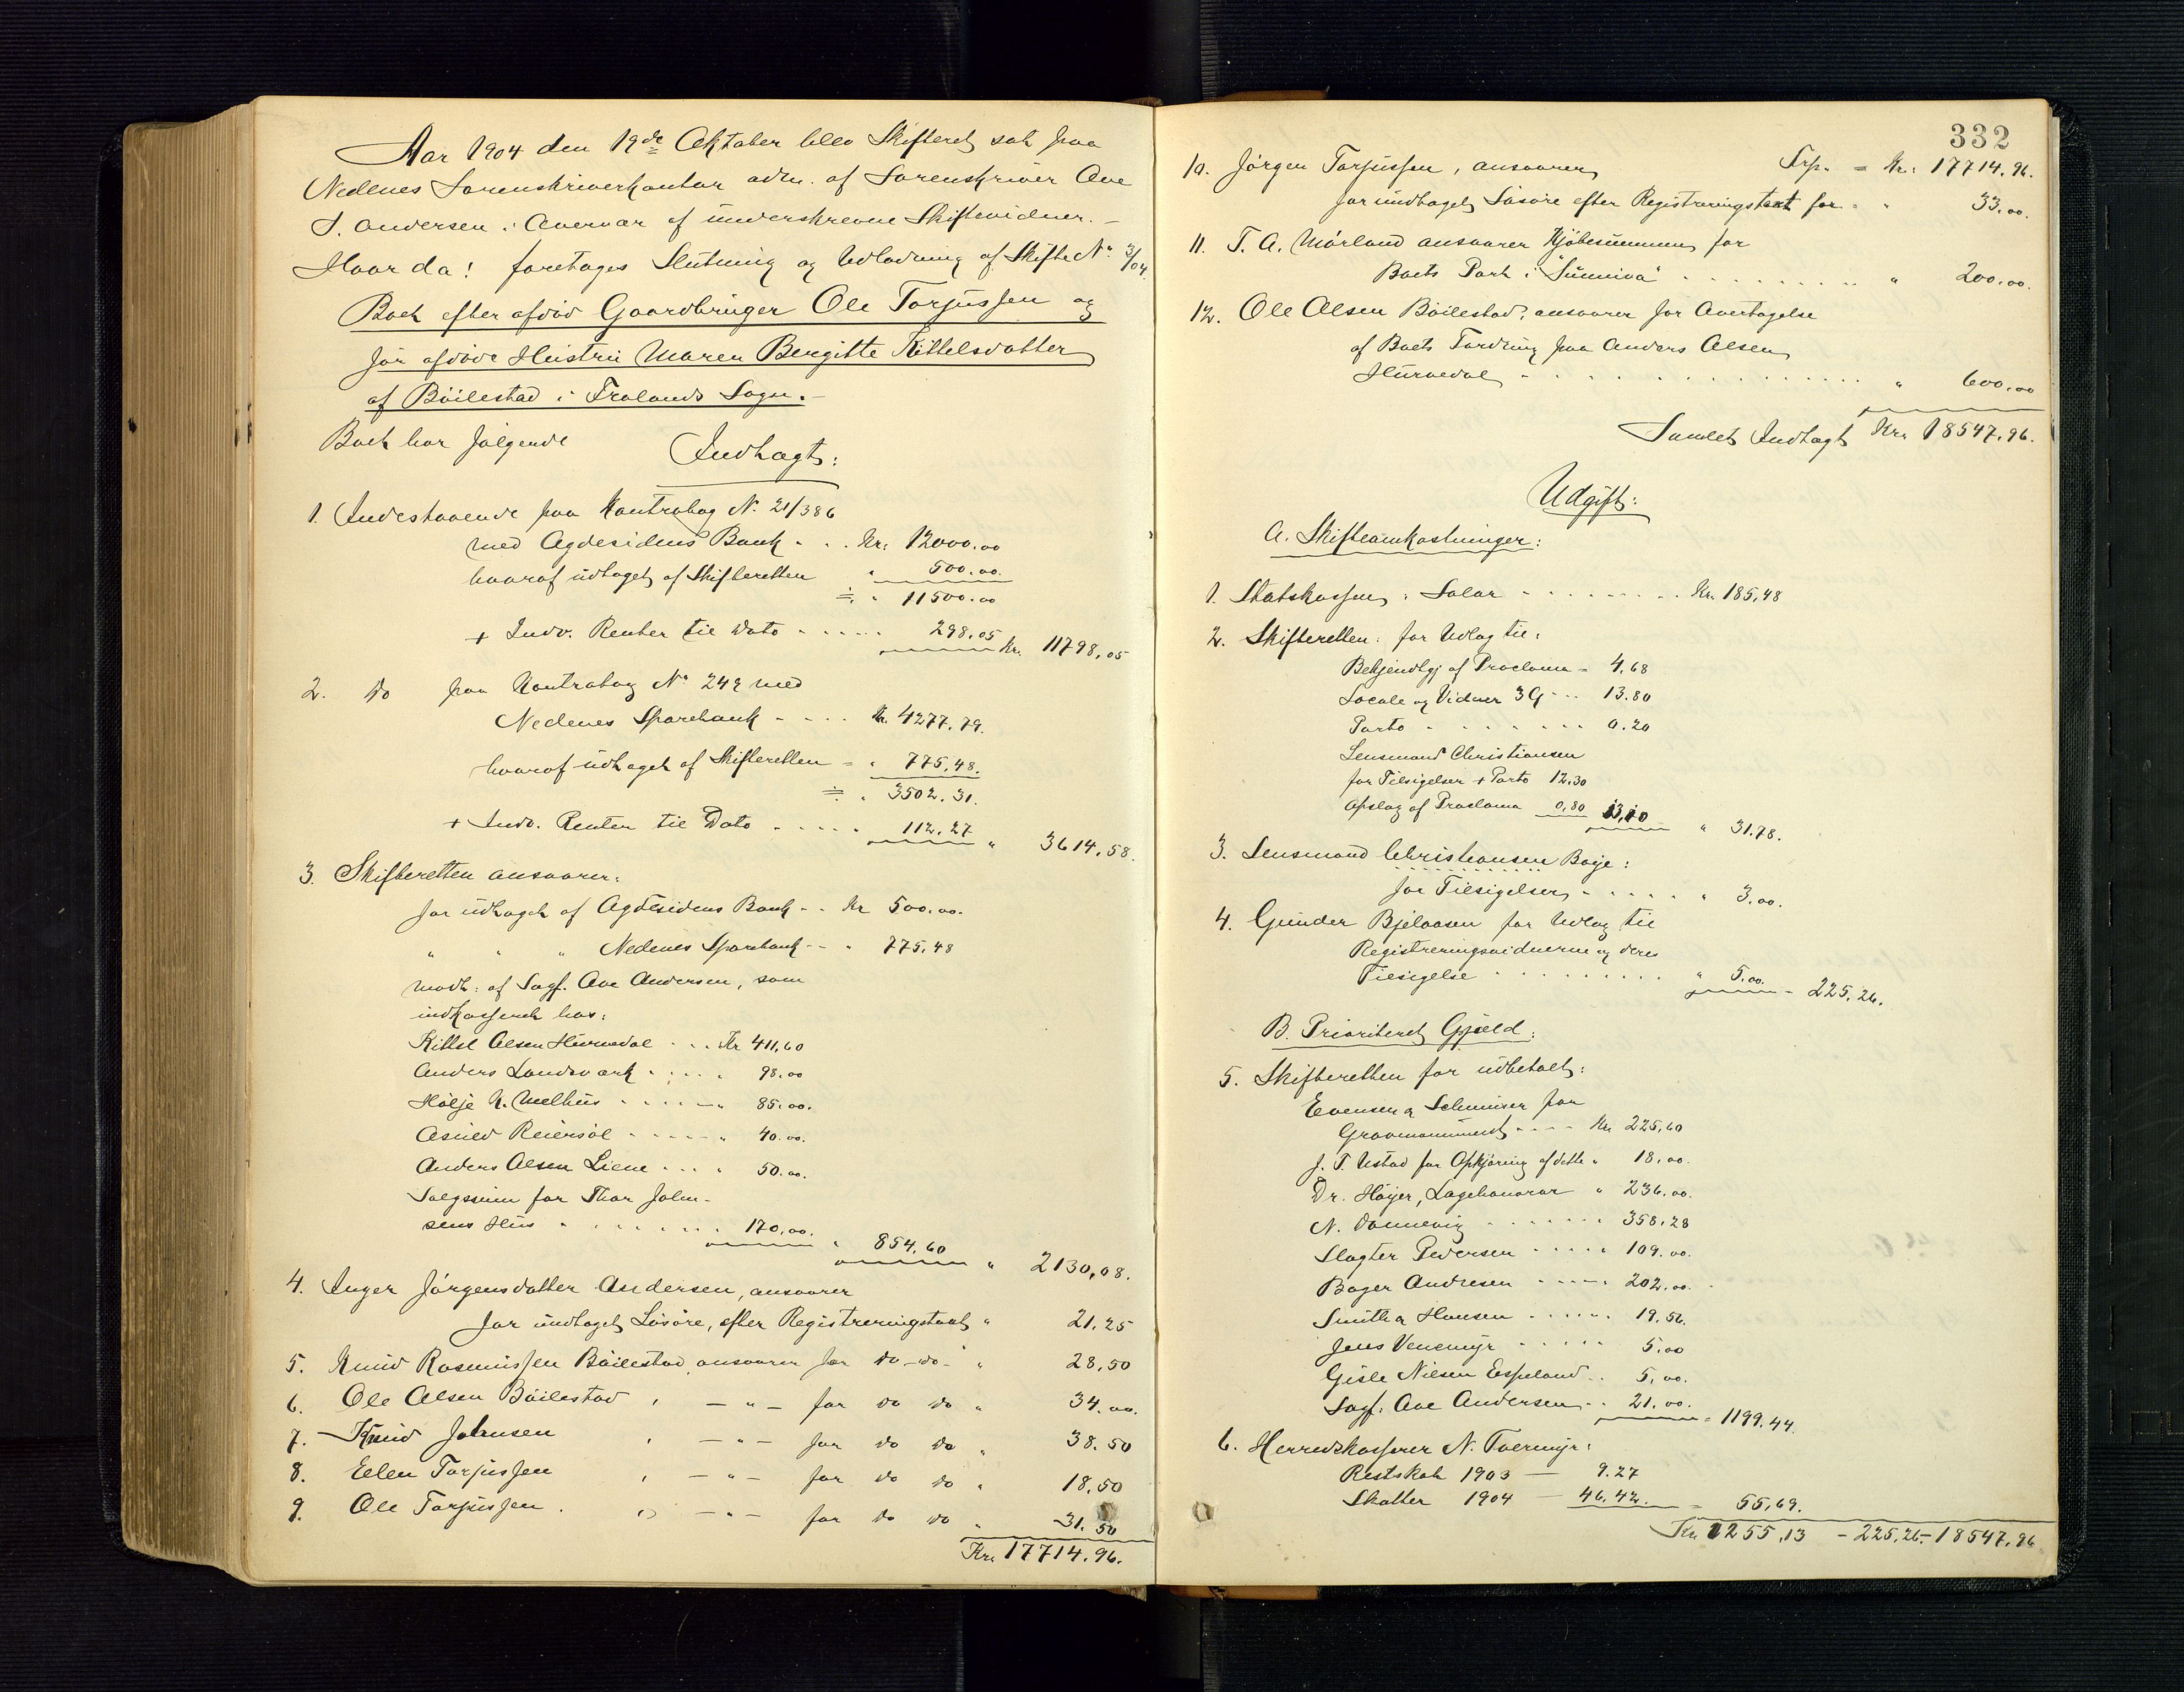 Aar 1904 den 19de Oktober blev Skifteret sat paa
Nedenes Sorenskriverkontor adm. af Sorenskriver Ove
S. Andersen i Overvær af underskrevne Skiftevidner. -
Hvor da! foretages Slutning og Udlodning af Skifte No 3/04
Boet efter afdød Gaardbruger Ole Torjussen og
før afdøde Hustru Maren Bergitte Kittelsdatter
af Bøilestad i Frolands Sogn. -
Boet har følgende
Indtægt:
1. Indestaaende paa Kontrabog No 21/386
med Agdesidens Bank - . . Kr. 12000.00
hvoraf udtaget af Skifteretten " 500.00.
÷ " 11500.00
+ Indv. Renter til Dato - . . . . 298.05 Kr. 11798,05
2. Do paa Kontrabog No 249 med
Nedenes Sparebank - . . . Kr. 4277.79.
hvoraf udtaget af Skifteretten - " 775,48.
÷ " 3502.31.
+ Indv. Renter til Dato - . . . . 112.27 " 3614,58.
3. Skifteretten ansvarer:
for udtaget af Agdesidens Bank - . Kr 500.00.
" " " Nedenes Sparebank - - " 775,48
modt: af Sagf. Ove Andersen, som
indkasseret hos:
Kittel Olsen Hurvedal . . . Kr 411,60
Anders Landsværk . . . . 98.00
Hølje K. Melhus . . . . - 85.00.
Osuld Reiersøl - . . . - " 40.00.
Anders Olsen Liene . . . " 50.00.
Salgssum for Thor John-
sens Hus - . . . . . . 170,00. " 854,60 " 2130,08.
4. Inger Jørgensdatter Andersen, ansvarer
for undtaget Løsøre, efter Registreringstaxt " 21.25
5. Knud Rasmussen Bøilestad ansvarer for do - do - " 28,50
6. Ole Olsen Bøilestad , - " - for do do " 34.00.
7. Knud Johnsen , - " - for do do " 38.50
8. Ellen Torjussen , - " - for do do " 18,50
9. Ole Torjussen . , - " - for do do " 31.50
Kr. 17714.96.
332
10. Jørgen Torjussen, ansvarer Trsp. = Kr. 17714.96.
for undtaget Løsøre efter Registreringstaxt for - " 33.00.
11. T. A. Mørland ansvarer Kjøbesummen for
Boets Part i "Sunniva" . . . . . . . . . " 200.00.
12. Ole Olsen Bøilestad, ansvarer for Overtagelse
af Boets Fordring paa Anders Olsen
Hurvedal - . . . . . . . . . . . . . . . . " 600,00
Samlet Indtægt Kr. 18547,96.
Udgift:
A. Skifteomkostninger:
1. Statskassen, i Salær - . . . . . . . . Kr. 185,48
2. Skifteretten: for Udlæg til:
Bekjendtgj af Proclama - 4.68
Locale og Vidner 3 G - . . 13.80
Porto - . . . . . . . 0.20
Lensmand Christiansen
for Tilsigelser + Porto 12.30
Opslag af Proclama 0,80 13,10 " 31.78.
3. Lensmand Christiansen Boye:
for Tilsigelser - . . . . " 3.00.
4. Gunder Bjelaasen for Udlæg til
Registreringsvidnerne og deres
Tilsigelse . . . . . . . . . . " 5.00. - 225,26.
B. Prioriteret Gjæld:
5. Skifteretten for udbetalt:
Evensen & Schmiser for
Gravmonument - . . . Kr. 225,60
J. T. Ustad for Opkjøring af dette " 18.00.
Dr. Høyer, Lægehonorar " 236.00.
N. Dannevig - . . . . . . 358,28
Slagter Pedersen - . . . . 109.00.
Bager Andresen - . . . . 202.00.
Smith & Hansen - . . . . 19.56.
Jens Venemyr - . . . . 5.00
Gisle Nilsen Espeland . . 5,00.
Sagf: Ove Andersen - . 21.00. " 1199.44.
6. Herredskasserer N. Tvermyr:
Restskat 1903 — 9.27
Skatter 1904 — 46,42. = 55,69.
Kr. 1255,13 - 225,26 - 18547,96